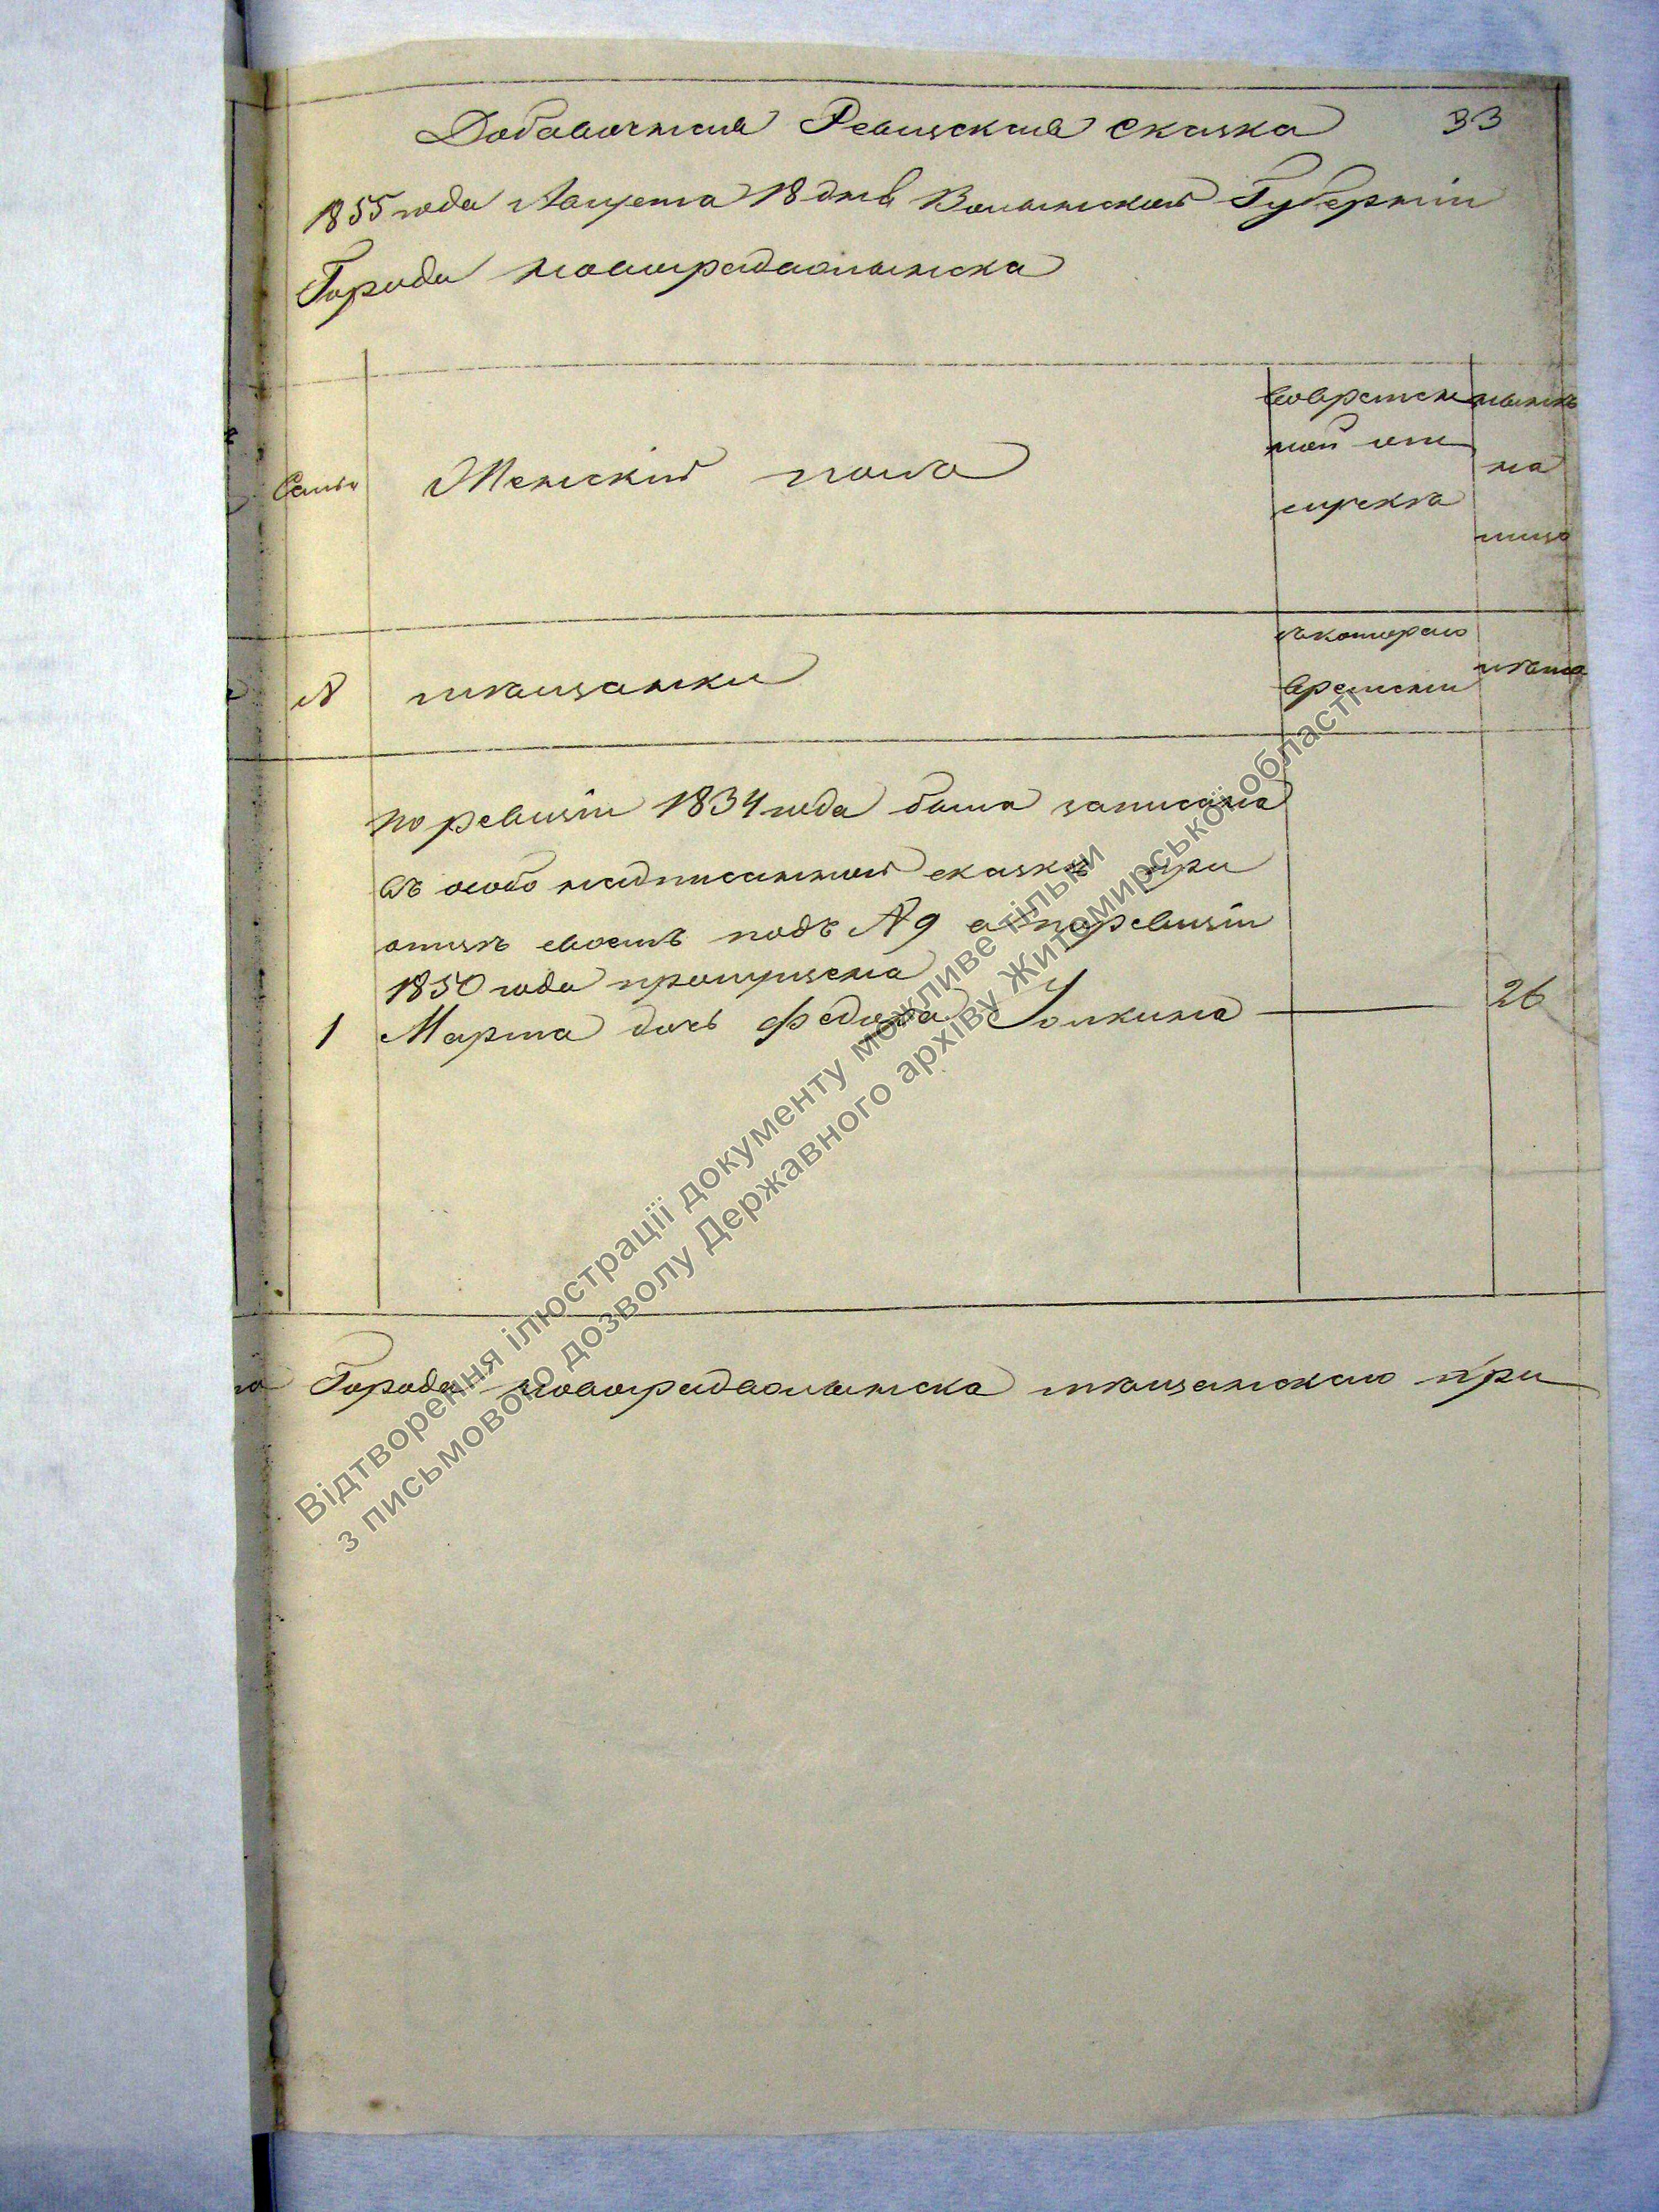 Добавочная Ревизская сказка 33
1855 года Августа 18 дня Волынской Губерніи
Города новоградволынска
Семьи
Женскій полъ
вовремен
ной от
лучкѣ
нынѣ
на
лицо
№
мѣщанки
съкотораго
времени
лѣта
по ревизіи 1834 года была записана
въ особо надписанной сказкѣ при
отцѣ своемъ подъ № 9 а по ревизіи
1850 года пропущена
1 Марта дочь Федора 26
Города новоградволынска мѣщанскаго при
Відтворення ілюстрації документу можливе тільки
з письмового дозволу Державного архіву Житомирської області